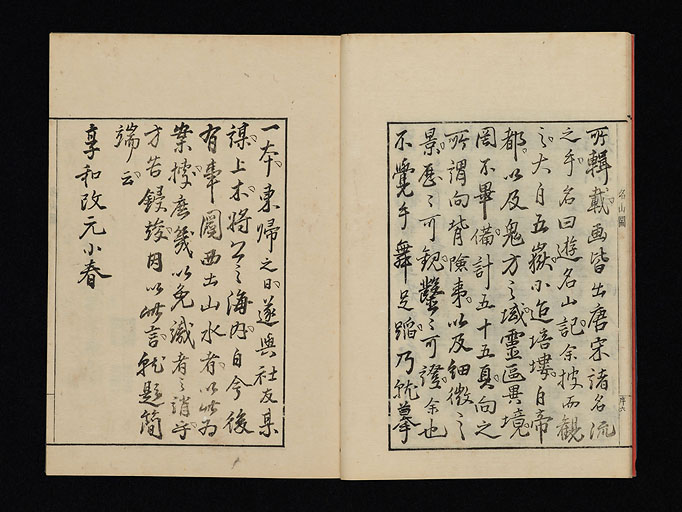 所輯載画皆出唐宋諸名流
之手名曰遊名山記余披而觀
之大自五嶽小迄培塿自帝
都以及鬼方之域靈區異境
罔不畢備計五十五頁向之
所謂向背險夷以及細微之
景歷々可觀鑿々可證余也
不覺手舞足蹈乃就摹
名山圖
序六
一本東歸之日遂與社友某
謀上木將公之海內自今後
有事圖西土山水者以此為
案據庶幾以免識者之誚乎
方告鋟竣因以此言就題簡
端云
享和改元小春